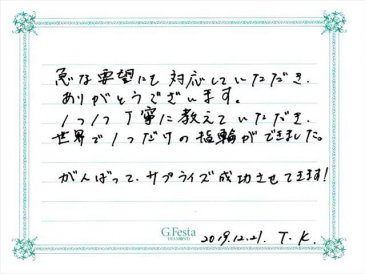 急な要望にも対応していただき、
ありがとうございます。
1つ1つ丁寧に教えていただき、
世界で1つだけの指輪ができました。
がんばって、サプライズ成功させてきます!
G.Festa
DIAMOND
2019.12.21. T.K.